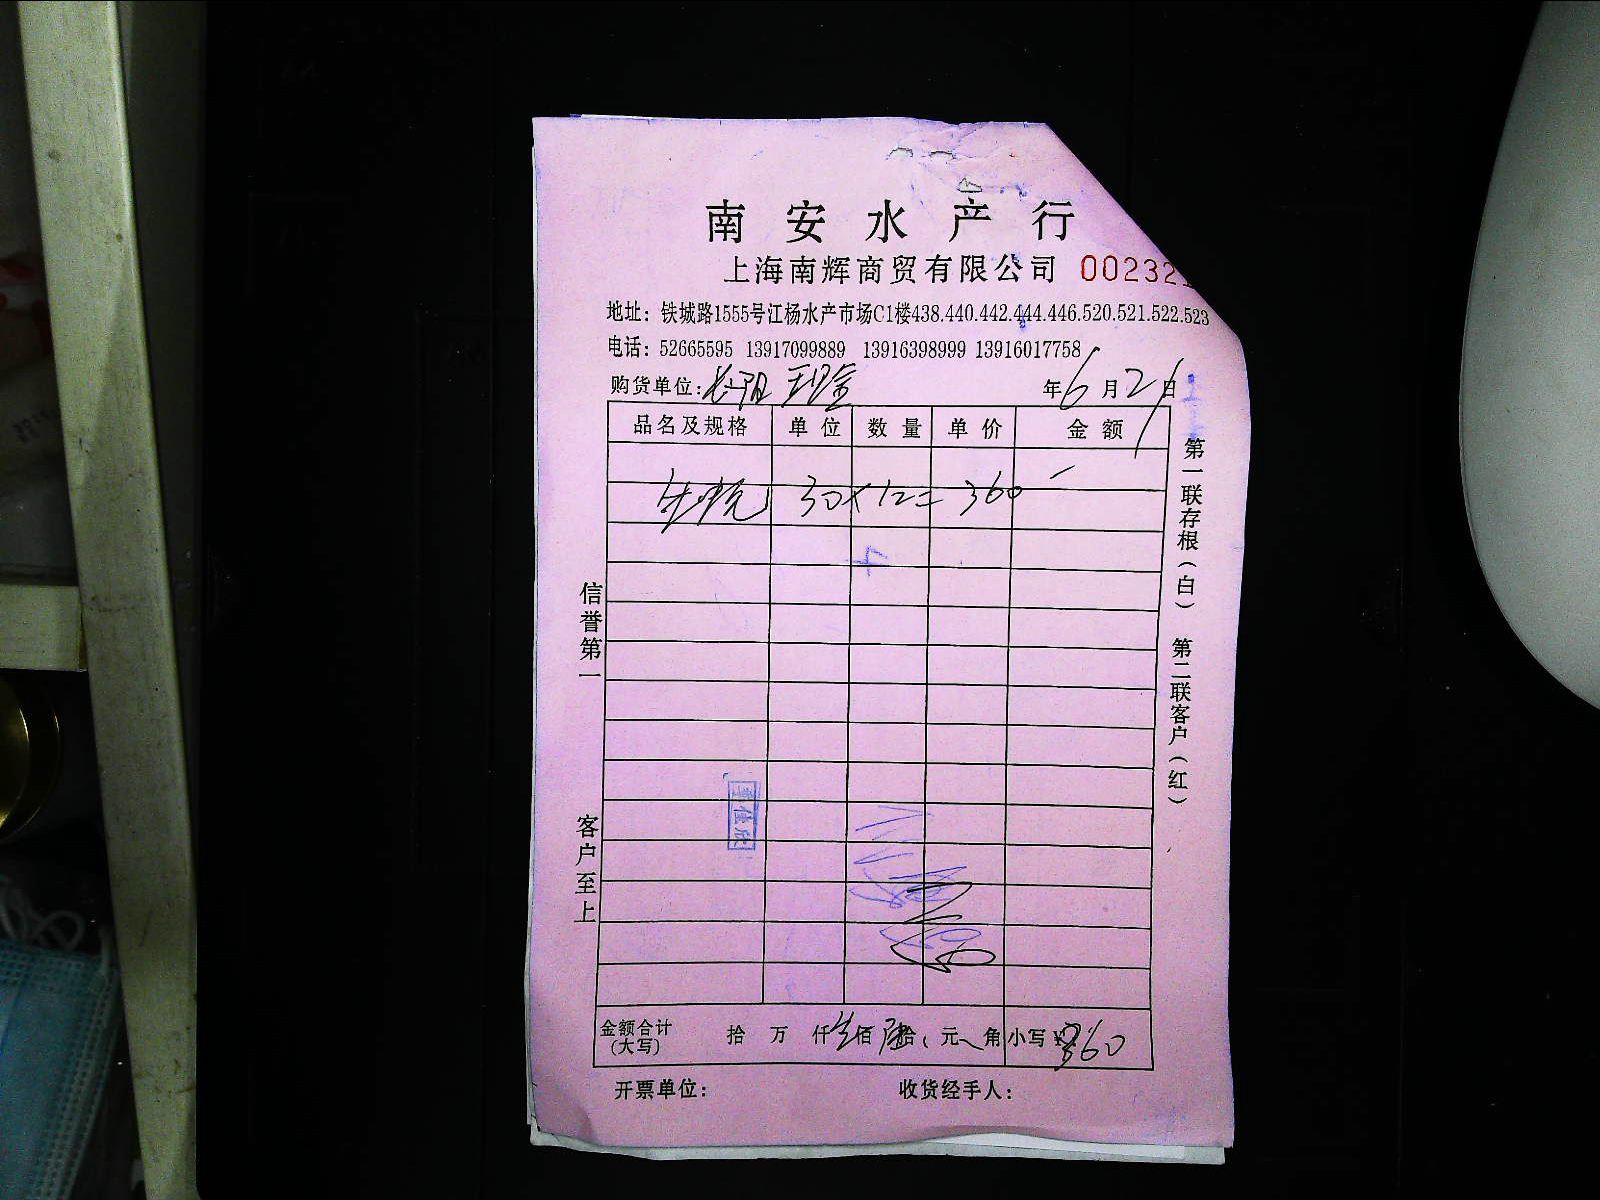 南安水产行
上海南辉商贸有限公司 00232
地址：铁城路1555号江杨水产市场C1楼438.440.442.444.446.520.521.522.523
电话：52665595 13917099889 13916398999 13916017758
购货单位：
年6月21日
品名及规格 单位 数量 单价 金额
30×12=360
4
信誉第一
客户至上
第一联存根（白） 第二联客户（红）
金额合计（大写） 拾 万 仟 佰 拾 元 角 小写¥360
开票单位： 收货经手人：